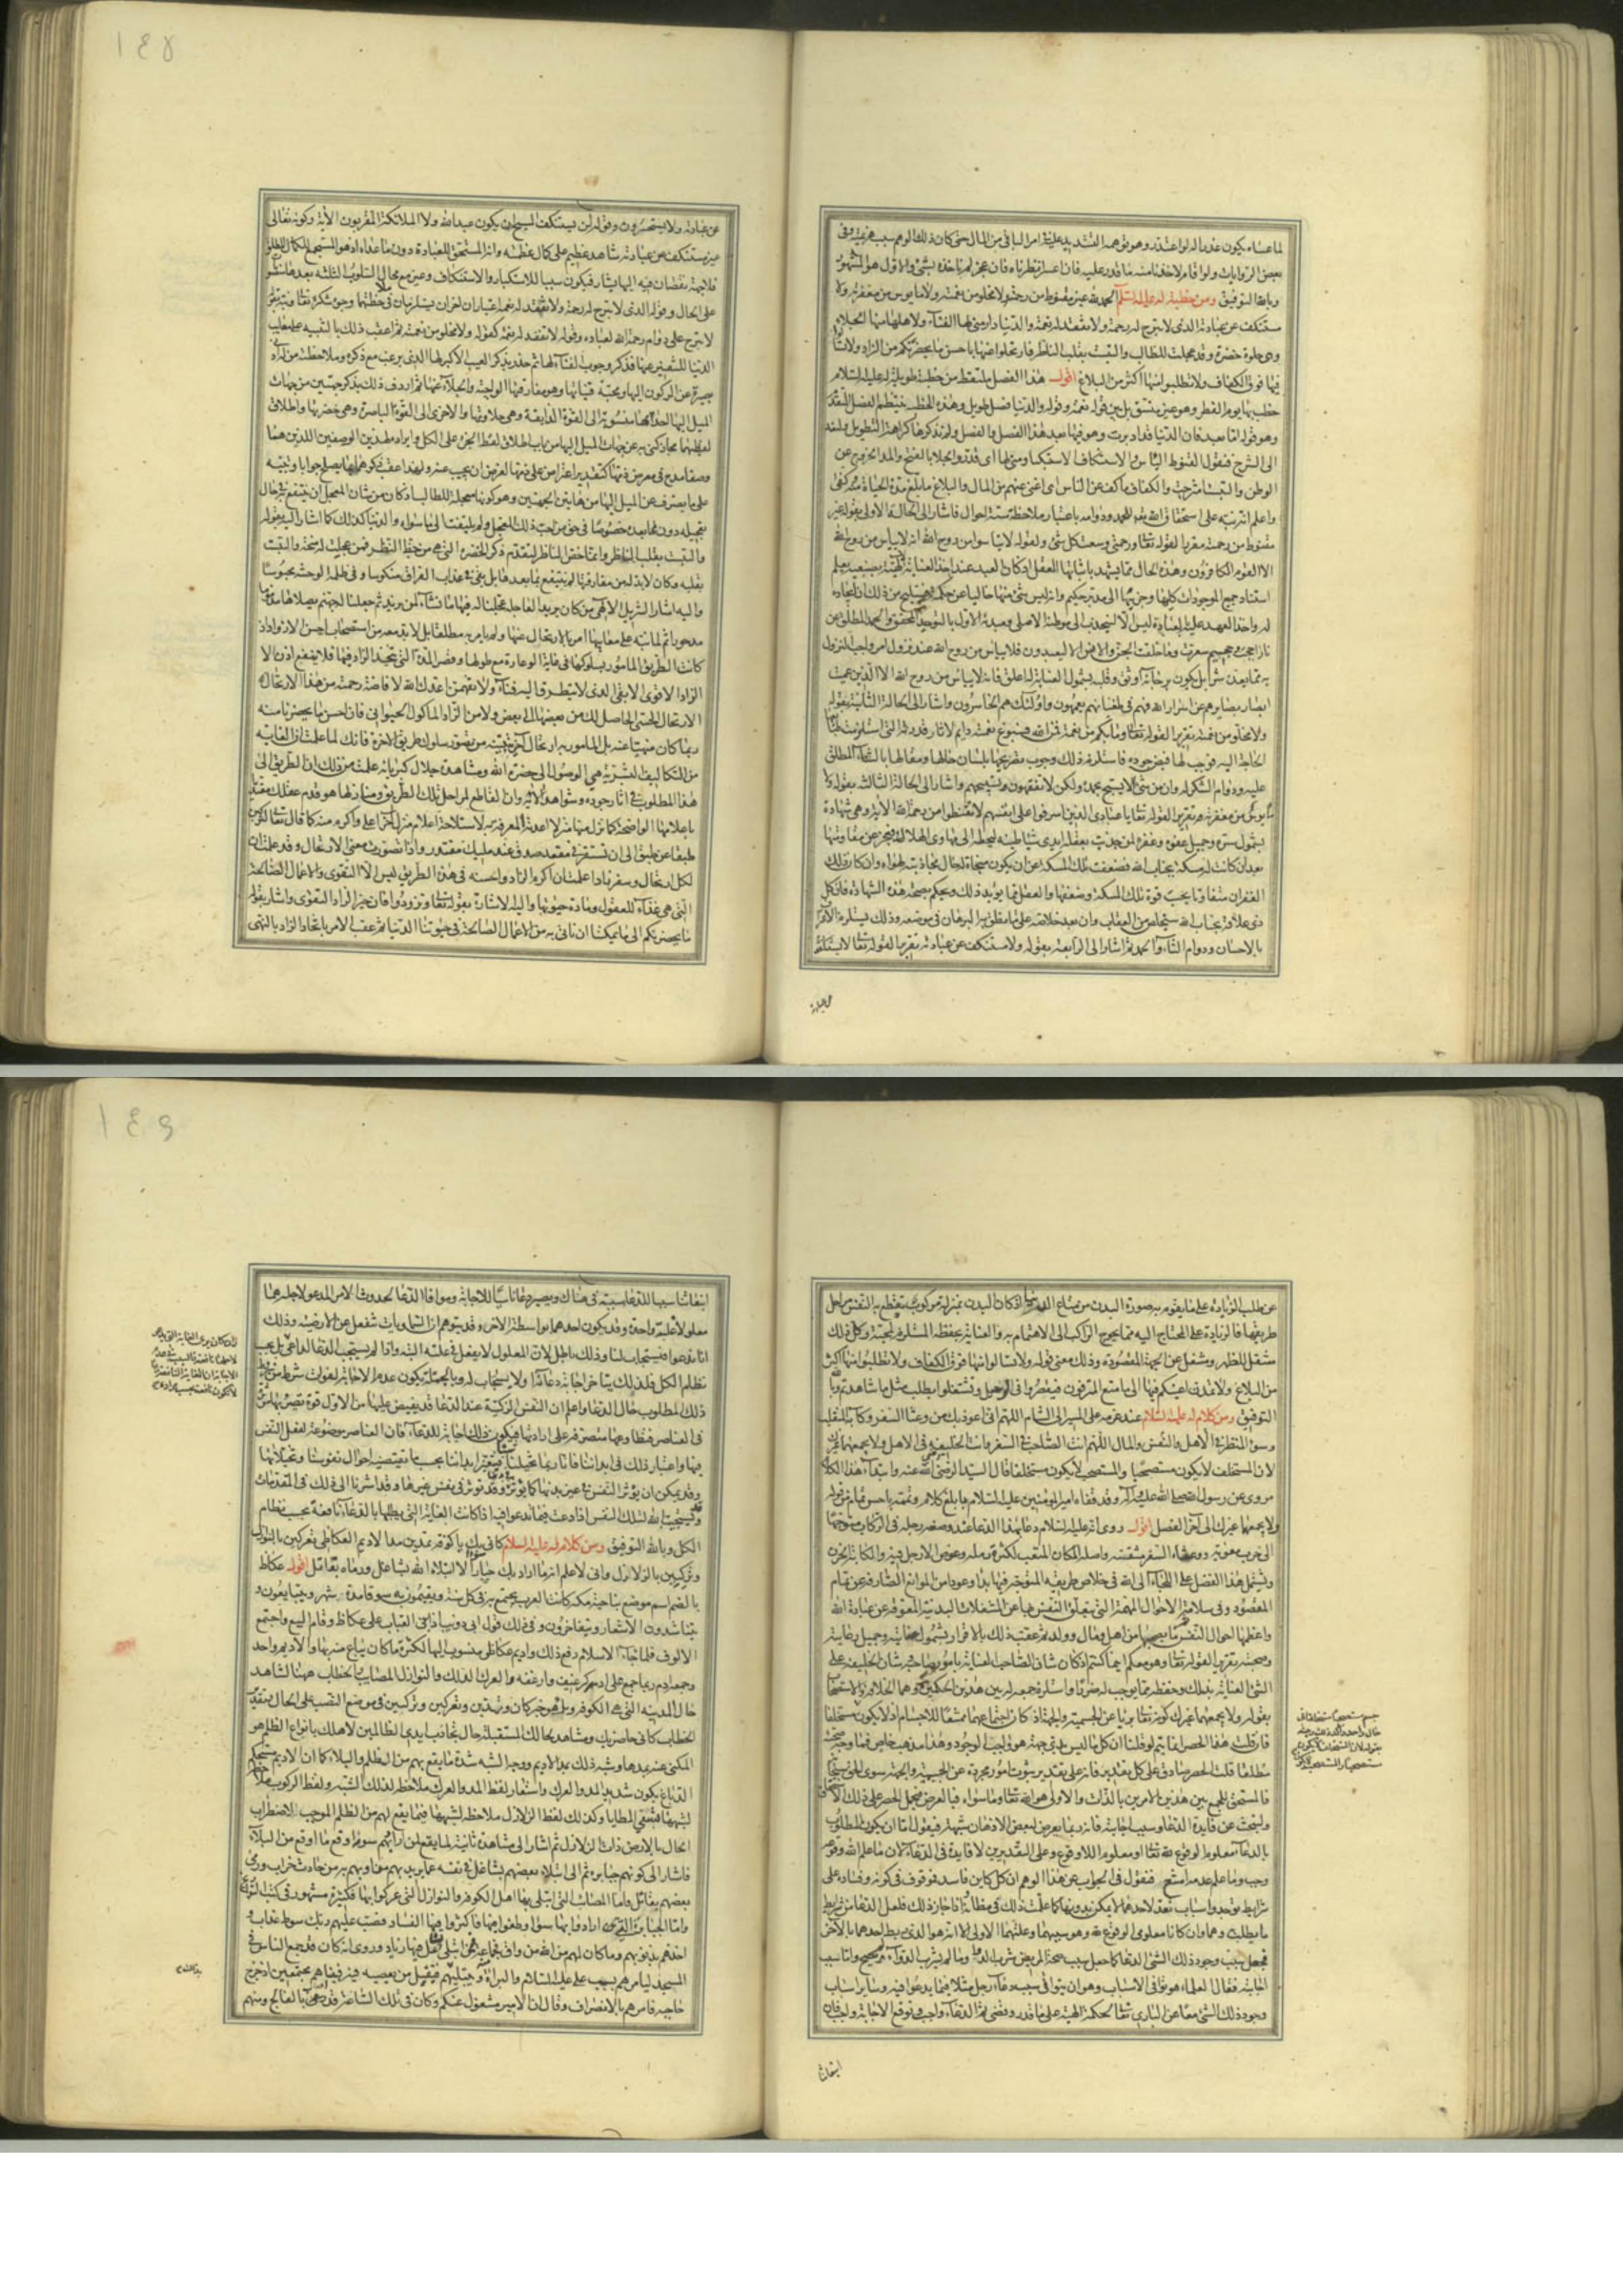 لما عساه يكون عذرا له لو اعتذر وهو توهمه التشديد عليه في امر الباقي من المال حتى كان ذلك الوهم سبب هربه وفي
بعض الروايات ولو اقام لاخذنا منه ما قدر عليه فان اعسر انظرناه فان عجز لم ناخذه بشئ والاول هو المشهور
وبالله التوفيق ومن خطبة له عليه السلم الحمد لله غير مقنوط من رحمته ولا مخلو من نعمته ولا مايوس من مغفرته ولا
مستنكف عن عبادته الذى لا تبرح له رحمة ولا تفقد له نعمة والدنيا دار منى لها الفناء ولاهلها منها الجلاء
وهى حلوة خضرة وقد عجلت للطالب والتبست بقلب الناظر فارتحلوا عنها باحسن ما بحضرتكم من الزاد ولا تسالوا
فيها فوق الكفاف ولا تطلبوا منها اكثر من البلاغ اقول هذا الفصل ملتقط من خطبة طويلة له عليه السلام
خطب بها يوم الفطر وهو غير متسق بل بين قوله نعمة وقوله والدنيا فصل طويل وهذه الخطبة ينتظم الفصل المتقدم
وهو قوله اما بعد فان الدنيا قد ادبرت وهو فيها بعد هذا الفصل والفصل ولم نذكرها كراهة التطويل ولنعد
الى الشرح فنقول القنوط الياس والاستنكاف الاستكبار ومنى لها اى قدر والجلا بالفتح والمد الخروج عن
الوطن والتبست امتزجت والكفاف ما كف عن الناس اى اغنى عنهم من المال والبلاغ ما بلغ مدة الحياة منه كفى
واعلم انه نبه على استحقاق الله تعالى للحمد ودوامه باعتبار ملاحظة ستة احوال فاشار الى الحالة الاولى بقوله غير
مقنوط من رحمته مقررا لقوله تعالى ورحمتى وسعت كل شئ ولقوله لا تياسوا من روح الله انه لا يياس من روح الله
الا القوم الكافرون وهذه الحال مما يشهد باثباتها العقل اذ كان العبد عند اخذ العناية الالهية بضبعيه يعلم
استناد جميع الموجودات كليها وجزئيها الى مدبر حكيم وانه ليس شئ منها خاليا عن حكمة فيستلزم من ذلك ان ايجاده
له واخذ العهد عليه بالعبادة ليس الا لينجذب الى موطنه الاصلى ومبدئه الاول بالتوحيد المحقق والحمد المطلق عن
نار اججت وجحيم سعرت وما خلقت الجن والانس الا ليعبدون فلا يياس من روح الله عند نزول امر واجب النزول
به مما يعده شرا بل يكون برجائه اوثق وقلبه بشمول العناية له اعلق فانه لا يياس من روح الله الا الذين عميت
ابصار بصايرهم عن اسرار الله فهم فى طغيانهم يعمهون واولئك هم الخاسرون واشار الى الحالة الثانية بقوله
ولا مخلو من نعمته تقريرا لقوله تعالى وما بكم من نعمة فمن الله فسبوغ نعمته دايم لآثار قدرته التى استلزمت طباعها
الحاجة اليه فوجب لها فيض جوده فاستلزم ذلك وجوب تصريحها بلسان حالها ومقالها بالثناء المطلق
عليه ودوام الشكر له وان من شئ الا يسبح بحمده ولكن لا تفقهون تسبيحهم واشار الى الحالة الثالثة بقوله ولا
مايوس من مغفرته تقريرا لقوله تعالى يا عبادى الذين اسرفوا على انفسهم لا تقنطوا من رحمة الله الآية وهى شهادة
بشمول ستره وجميل عفوه وغفره لمن جذبت بعقله ايدى شياطينه ليحطه الى مهاوى الهلاك فعجز عن مقاومتها
بعد ان كانت له مسكة بجناب الله فضعفت تلك المسكة عن ان يكون منجاة لحال مجاذبته لهواه وان كان ذلك
الغفران متفاوتا بحسب قوة تلك المسكة وضعفها والعقل مما يؤيد ذلك ويحكم بصحة هذه الشهادة فان كل
ذى علاقة بجناب الله سيخلص من العقاب وان بعد خلاصه على ما نطق به البرهان فى موضعه وذلك يستلزم الاقرار
بالاحسان ودوام الثناء والحمد ثم اشار الى الرابعة بقوله ولا مستنكف عن عبادته تقريرا لقوله تعالى لا يستكبرون
عن عبادته
١٤٨
عن عبادته ولا يستحسرون وقوله لن يستنكف المسيح ان يكون عبدا لله ولا الملائكة المقربون الآية وكونه تعالى
غير مستنكف عن عبادته شاهد عظيم على كمال عظمته وانه المستحق للعبادة دون ما عداه اذ هو المستجمع للكمال المطلق
فلا جهة نقصان فيه اليها يشار فيكون سببا للاستكبار والاستنكاف
على الحال وقوله الذى لا تبرح له رحمة ولا تفقد له نعمة اعتباران اخران يستلزمان فى ملاحظتهما وجوب شكره تعالى فنبه بقوله
لا تبرح على دوام رحمة الله لعباده وقوله لا تفقد له نعمة كقوله ولا مخلو من نعمته ثم اعقب ذلك بالتنبيه على معايب
الدنيا للتنفير عنها فذكر وجوب الفناء لها ثم حذر بذكر العيب الاكبر لها الذى
بصيرة عن الركون اليها ومحبة قنياتها وهو مفارقتها الواجبة والجلاء عنها ثم اردف ذلك بذكر جهتين من جهات
الميل اليها احداهما منسوبة الى القوة الذايقة وهى حلاوتها والاخرى الى القوة الباصرة وهى خضرتها واطلاق
لفظيهما مجاز كنى به عن جهات الميل اليها من باب اطلاق لفظ الجزء على الكل وايراده لهذين الوصفين اللذين هما
وصفا مدح فى معرض ذمها كتقدير اعتراض على ذمها لغرض ان يجيب عنه ولهذا عقب ذكرهما بما يصلح جوابا ونبه
على ما يصرف عن الميل اليها من هاتين الجهتين وهو كونها معجلة للطالب اذ كان من شان المعجل ان ينتفع به فى حال
تعجيله دون ما بعده خصوصا فى حق من احب ذلك المعجل ولم يلتفت الى ما سواه والدنيا كذلك كما اشار اليه بقوله
والتبست بقلب الناظر وانما خص الناظر لتقدم ذكر الخضرة التى هى من حظ النظر فمن عجلت له منحة والتبست
بقلبه وكان لابد له من مفارقتها لم ينتفع بما بعدها بل بقى فى عذاب الفراق منكوسا وفى ظلمة الوحشة محبوسا
واليه اشار التنزيل الالهى من كان يريد العاجلة عجلنا له فيها ما نشاء لمن نريد ثم جعلنا له جهنم يصلاها مذموما
مدحورا ثم لما نبه على معايبها امر بالارتحال عنها ولم يامر به مطلقا بل لابد معه من استصحاب احسن الازواد اذ
كانت الطريق المامور بسلوكها فى غاية الوعارة مع طولها وقصر المدة التى يتخذ الزاد فيها فلا ينفع اذن الا
الزاد الاقوى الابقى الذى لا يتطرق اليه فناء ولا تفهمن اعدك الله لافاضة رحمته من هذا الارتحال
الارتحال الحسى الحاصل لك من بعضها الى بعض ولا من الزاد الماكول الحيوانى فان احسن ما يحضرنا منه
ربما كان منهيا عنه بل المامور به ارتحال آخر من تصور سلوك طريق الاخرة فانك لما علمت ان الغاية
من التكاليف البشرية هى الوصول الى حضرة الله ومشاهدة جلال كبريائه علمت من ذلك ان الطريق الى
هذا المطلوب هى آثار جوده وشواهد الائه وان القاطع لمراحل تلك الطريق ومنازلها هو قدم عقلك مقتديا
باعلامها الواضحة كلما نزل منها منزلا اعدته المعرفة به لاستلاحة اعلام منزل اخر اعلى واكرم منه كما قال تعالى لتركبن
طبقا عن طبق الى ان تستقر فى مقعد صدق عند مليك مقتدر واذا تصورت معنى الارتحال وقد علمت ان
لكل ارتحال وسفر زادا علمت ان اكرم الزاد واحسنه فى هذه الطريق ليس الا التقوى والاعمال الصالحة
التى هى غذاء للعقول ومادة حيوتها واليه الاشارة بقوله تعالى وتزودوا فان خير الزاد التقوى واشار بقوله
ما بحضرتكم الى ما يمكننا ان ناتى به من الاعمال الصالحة فى حيوتنا الدنيا ثم عقب الامر باتخاذ الزاد بالنهى
عن طلب الزيادة على ما يقوم به صورة البدن من متاع الدنيا اذ كان البدن بمنزلة مركوب تقطع به النفس مراحل
طريقها فالزيادة على المحتاج اليه مما يحوج الراكب الى الاهتمام به والعناية بحفظه المستلزم لمحبته وكل ذلك
مثقل للظهر ومشغل عن الجهة المقصودة وذلك معنى قوله ولا تسالوا فيها فوق الكفاف ولا تطلبوا منها اكثر
من البلاغ ولا تمدن اعينكم فيها الى ما متع المترفون فيقصروا فى الرحيل وتشتغلوا بطلب مثل ما شاهدتم وبالله
التوفيق ومن كلام له عليه السلام عند عزمه على المسير الى الشام اللهم انى اعوذ بك من وعثاء السفر وكآبة المنقلب
وسوء المنظر فى الاهل والنفس والمال اللهم انت الصاحب فى السفر وانت الخليفة فى الاهل ولا يجمعهما غيرك
لان المستخلف لا يكون مستصحبا والمستصحب لا يكون مستخلفا قال السيد الرضى رضى الله عنه وابتداء هذا الكلام
مروى عن رسول الله صلى الله عليه وآله وقد قفاه امير المؤمنين عليه السلام بابلغ كلام وتممه باحسن تمام من قوله
ولا يجمعهما غيرك الى آخر الفصل اقول روى انه عليه السلام دعا بهذا الدعا عند وضعه رجله فى الركاب متوجها
الى حرب معوية ووعثاء السفر مشقته واصله المكان المتعب لكثرة رمله وغوص الارجل فيه والكآبة الحزن
ويشتمل هذا الفصل على اللجاء الى الله فى خلاص طريقه المتوجه فيها بدا وعودا من الموانع الصارفة عن تمام
المقصود وفى سلامة الاحوال المهمة التى يتعلق النفس بها عن المشغلات البدنية المعوقة عن عبادة الله
واعظمها احوال النفس ما يصحبها من اهل ومال وولد ثم عقب ذلك بالاقرار بشمول عنايته وجميل رعايته
وصحبته تقريرا لقوله تعالى وهو معكم اينما كنتم اذ كان شان الصاحب العناية بامور صاحبه وشان الخليفة على
الشئ العناية بذلك وحفظه مما يوجب له ضررا واستلزم جمعه له بين هذين الحكمين وهما الخلافة والاستصحاب
بقوله ولا يجمعهما غيرك كونه تعالى بريا عن الجسمية والجهة اذ كان اجتماعهما ممتنعا للاجسام اذ لا يكون مستخلفا
فان قلت هذا الحصر انما يتم لو قلنا ان كل ما ليس بذى جهة هو واجب الوجود وهذا مذهب خاص فما وجه صحته
مطلقا قلت الحصر صادق على كل تقدير فانه على تقدير ثبوت امور مجردة عن الجسمية والجهة سوى الحق سبحانه
فالمستحق للجمع بين هذين الامرين بالذات والاولى هو الله تعالى وما سواه فبالعرض فيحمل الحصر على ذلك الاستحقاق
ولنبحث عن فايدة الدعاء وسبب اجابته فانه ربما يعرض لبعض الاذهان شبهة فيقول اما ان يكون المطلوب
بالدعاء معلوم الوقوع لله تعالى او معلوم اللاوقوع وعلى التقديرين لا فايدة فى الدعاء لان ما علم الله وقوعه
وجب وما علم عدمه امتنع فنقول فى الجواب عن هذا الوهم ان كل كاين فاسد موقوف فى كونه وفساده على
شرايط توجد واسباب تعد لاحدهما لا يمكن بدونها كما علمت ذلك فى مظانه اذا جاز ذلك فلعل الدعا من شرايط
ما يطلب به وهما وان كانا معلومى الوقوع لله وهو سببهما وعلتهما الاولى الا انه هو الذى ربط احدهما بالاخر
فجعل سبب وجود ذلك الشئ الدعا كما جعل سبب صحة المريض شرب الدوا وما لم يشرب الدواء لم يصح واما سبب
اجابته فقال العلماء هو توافى الاسباب وهو ان يتوافى سبب دعاء رجل مثلا فيما يدعو فيه وساير اسباب
وجود ذلك الشئ معا عن البارى تعالى لحكمة الهية على ما قدر وقضى ثم الدعاء واجب وتوقع الاجابة واجب فان
انبعاثنا
١٤٩
انبعاثنا للدعا سببه من هناك ويصير دعائنا سببا للاجابة وموافاة الدعا لحدوث الامر المدعو لاجله هما
معلولا علة واحدة وقد يكون احدهما بواسطة الاخر وقد يتوهم ان السماويات تنفعل عن الارضية وذلك
انا ندعوها فتستجاب لنا وذلك باطل لان المعلول لا يفعل فى علته البتة واذا لم يستجب الدعا لداعى
ذلك المطلوب حال الدعا واعلم ان النفس الزكية عند الدعا قد يفيض عليها من الاول قوة تصير بها مؤثرة
فى العناصر فتطاوعها متصرفة على ارادتها فيكون ذلك اجابة للدعاء فان العناصر موضوعة لفعل النفس
فيها واعتبار ذلك فى ابداننا فانا ربما تخيلنا شيئا فتتغير ابداننا بحسب ما يقتضيه احوال نفوسنا وتخيلاتها
وقد يمكن ان يؤثر النفس فى غير بدنها كما يؤثر فى بدنها وقد توثر فى نفس غيرها وقد اشرنا الى ذلك فى المقدمات
وقد يستجيب الله لتلك النفس اذا دعت فيما تدعو فيه اذا كانت الغاية التى يطلبها بالدعاء نافعة بحسب نظام
الكل وبالله التوفيق ومن كلام له عليه السلام كانى بك يا كوفة تمدين مد الاديم العكاظى تعركين بالنوازل
وتركبين بالزلازل وانى لاعلم انه ما اراد بك جبار سوءا الا ابتلاه الله بشاغل ورماه بقاتل اقول عكاظ
بالضم اسم موضع بناحية مكة كانت العرب يجتمع به فى كل سنة ويقيمون به سوقا مدة شهر ويتبايعون و
يتناشدون الاشعار ويتفاخرون وفى ذلك قول ابى ذويب اذا بنى القباب على عكاظ وقام البيع واجتمع
الالوف فلما جاء الاسلام رفع ذلك واديم عكاظى منسوب اليها لكثرة ما كان يباع منه بها والاديم واحد
وجمعه ادم وربما جمع على ادمة كرغيف وارغفة والعرك الدلك والنوازل المصايب والخطاب ههنا لشاهد
حال المدينة التى هى الكوفة وبك هو خبر كان وتمدين وتعركين وتركبين فى موضع النصب على الحال بتقدير
الخطاب كانى حاضر بك ومشاهد لحالك المستقبلة حال تجاذب ايدى الظالمين لاهلك بانواع الظلم وهو
المكنى عنه بمدها وشبه ذلك بمد الاديم ووجه الشبه شدة ما يقع بهم من الظلم والبلاء كما ان الاديم مستحكم
الدباغ يكون شديد المد والعرك واستعار لفظ المد والعرك ملاحظة لذلك الشبه ولفظ الركوب ملاحظة
لشبهها بشقى المطايا وكذلك لفظ الزلازل ملاحظة لشبهها فيما يقع لهم من الظلم الموجب لاضطراب
الحال بالارض ذات الزلازل ثم اشار الى مشاهدة ثانية لما يقع لمن ارادهم بسوء
فاشار الى كونهم جبابرة ثم الى ابتلاء بعضهم بشاغل فى نفسه عما يريد بهم من حادث خراب ورمى
بعضهم بقاتل واما المصايب التى ابتلى بها اهل الكوفة والنوازل التى عركوا بها فكثيرة مشهورة فى كتب التواريخ
واما الجبابرة التى ارادوا بها سوءا وطغوا فيها فاكثروا فيها الفساد فصب عليهم ربك سوط عذاب و
اخذهم بذنوبهم وما كان لهم من الله من واق فجماعة فمن ابتلى بشاغل فيها زياد وروى انه كان قد جمع الناس فى
المسجد ليامرهم بسب على عليه السلام والبراءة منه ويبتليهم فيقتل من يعصيه فيه فبيناهم مجتمعين اذ خرج
حاجبه فامرهم بالانصراف وقال ان الامير مشغول عنكم وكان فى تلك الساعة قد رمى بالفالج ومنهم